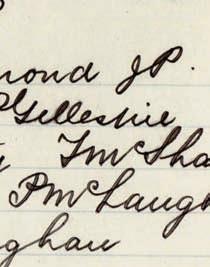 mond JP.
P Gillespie
TMcSha
PMcLaugh
ghan